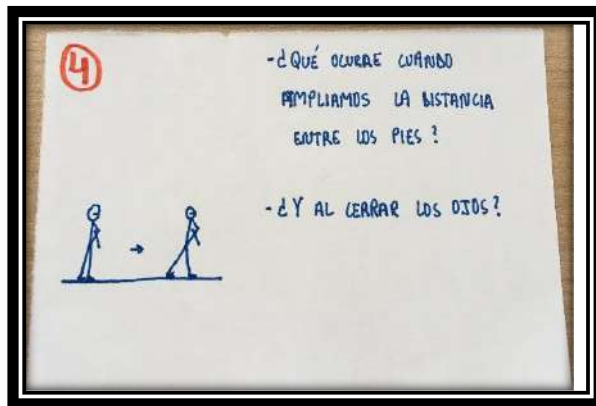 4
- ¿QUÉ OCURRE CUANDO
AMPLIAMOS LA DISTANCIA
ENTRE LOS PIES?
- ¿Y AL CERRAR LOS OJOS?